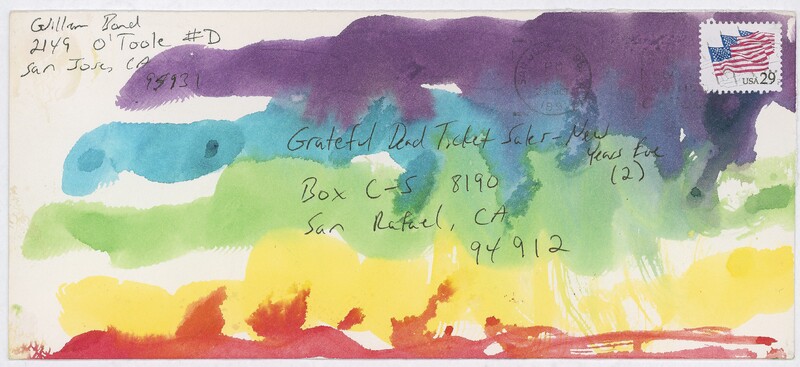 William Bond
2149 O'Toole #D
San Jose, CA
95931
USA 29
Grateful Dead Ticket Sales - New
Years Eve
(2)
Box C-S 8190
San Rafael, CA
94912